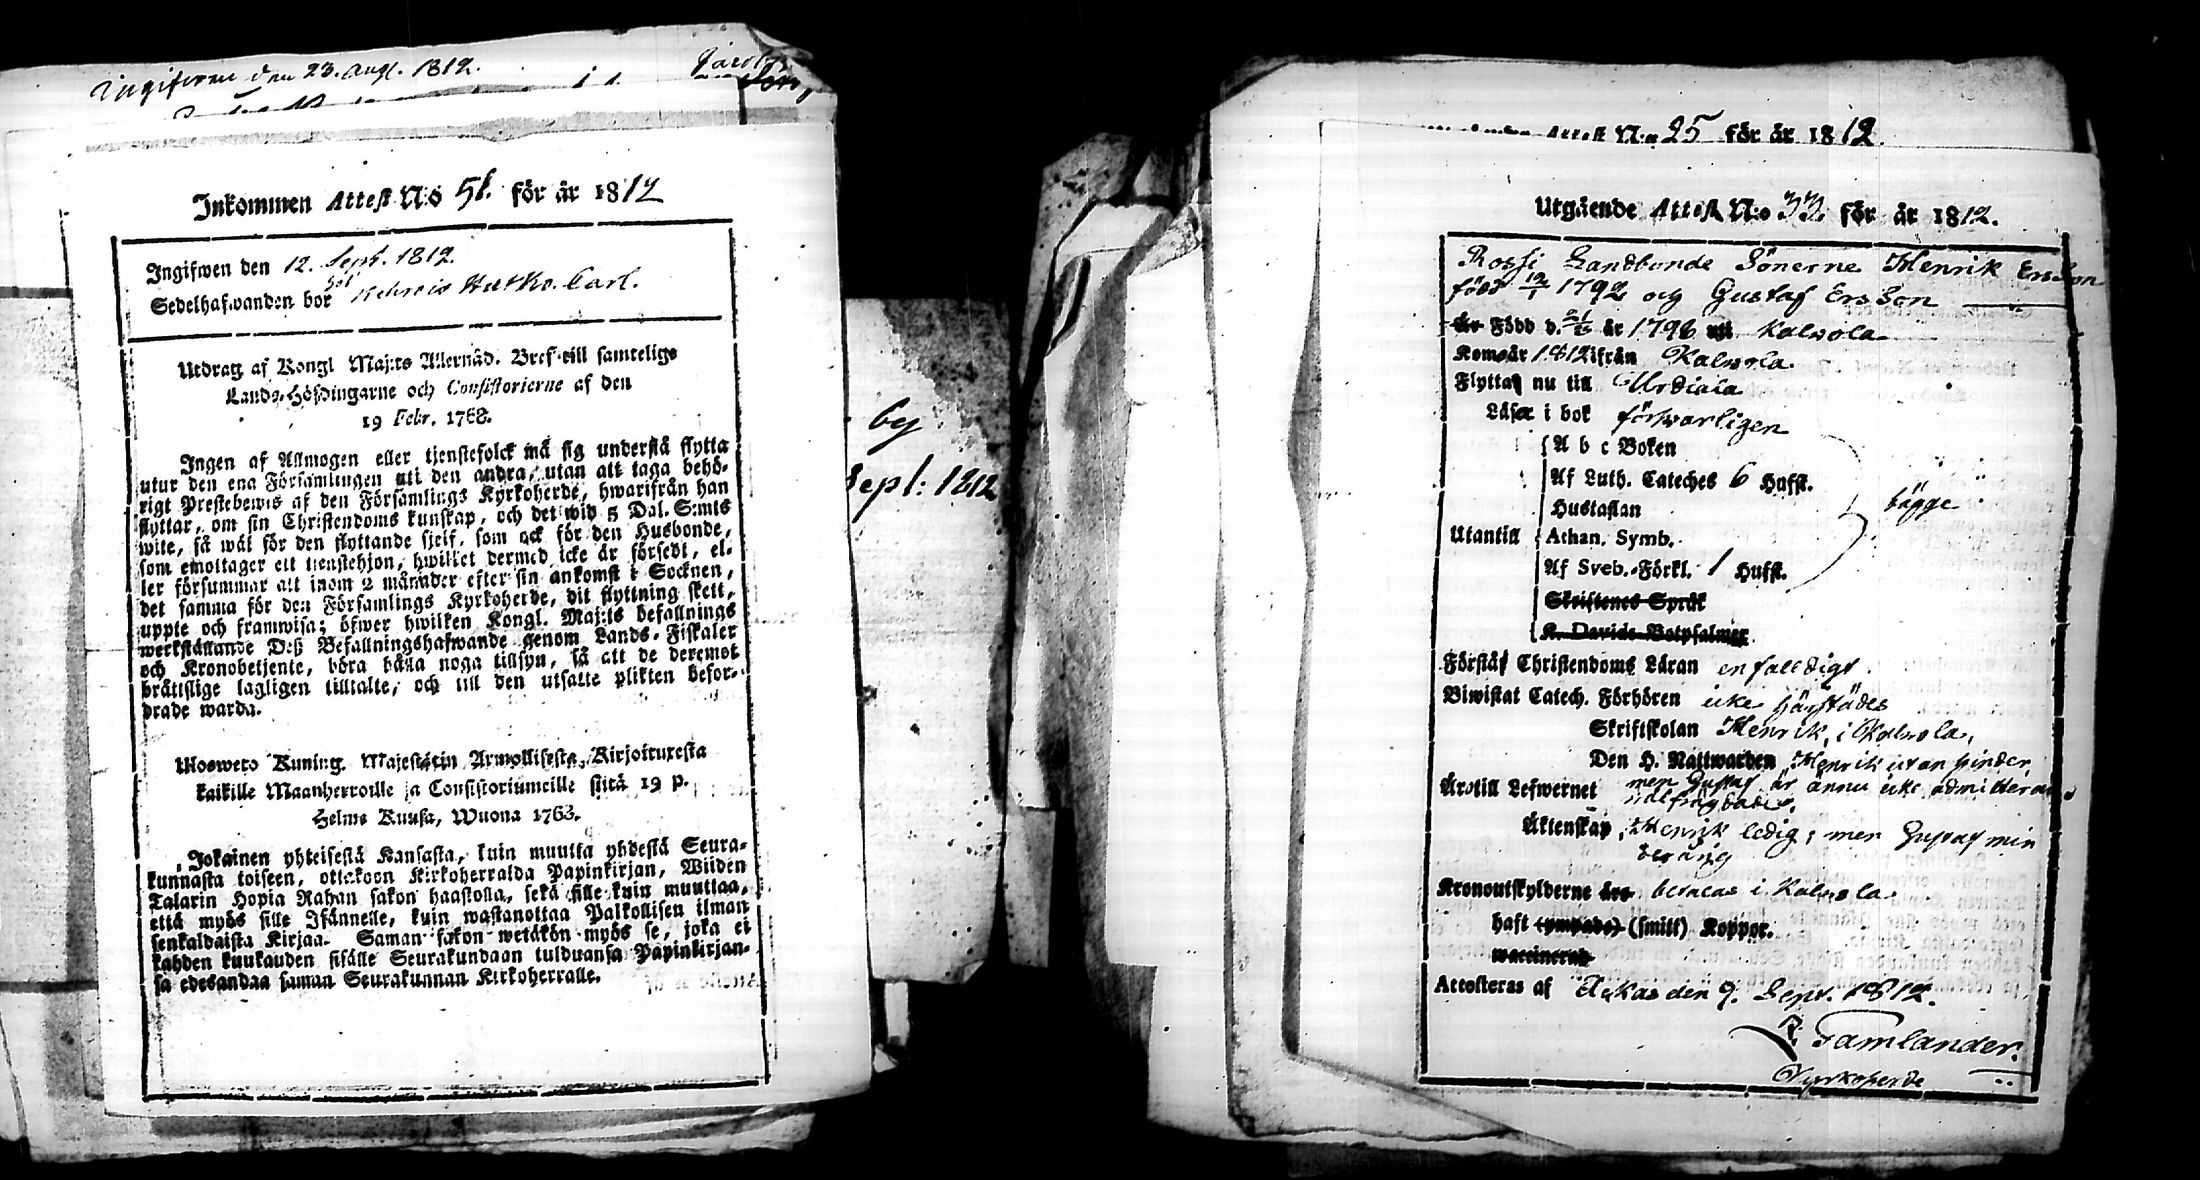 Ingifwen den 23. Augt. 1812.
Inkommen Attest N:o 51. för år 1812
Ingifwen den 12. Sept. 1812.
Sedelhafwanden bor hos Carl.
Utdrag af Kongl Maj:ts Allernåd. Bref till samtelige
Lands-Höfdingarne och Consistorierne af den
19 Febr. 1768.
Ingen af Allmogen eller tjenstefolck må sig understå flytta
utur den ena Församlingen uti den andra, utan att taga behö-
rigt Prestebewis af den Församlings Kyrkoherde, hwarifrån han
flyttar, om sin Christendoms kunskap, och det wid 5 Dal. S:mts
wite, så wäl för den flyttande sjelf, som ock för den Husbonde,
som emottager ett tienstehjon, hwilket dermed icke är försedt, el-
ler försummar att inom 2 månader efter sin ankomst i Socknen,
det samma för den Församlings Kyrkoherde, dit flyttning skett,
uppte och framwisa; öfwer hwilken Kongl. Maj:ts befallnings
werkställande Deß Befallningshafwande genom Lands-Fiskaler
och Kronobetjente, böra hålla noga tillsyn, så att de deremot
bråttslige lagligen tilltalte, och till den utsatte plikten befor-
drade warda.
Ulosweto Kuning. Majestätin Armollisesta Kirjoituxesta
kaikille Maanherroille ja Consistoriumeille siitä 19 p.
Helme Kuusa, Wuona 1763.
Jokainen yhteisestä Kansasta, kuin muutta yhdestä Seura-
kunnasta toiseen, ottakoon Kirkoherralda Papinkirjan, Wiiden
Talarin Hopia Rahan sakon haastolla, sekä sille kuin muuttaa,
että myös sille Isännelle, kuin wastanottaa Palkollisen ilman
senkaldaista Kirjaa. Saman sakon wetäkön myös se, joka ei
kahden kuukauden sisälle Seurakundaan tulduansa Papinkirjan-
sa edesandaa saman Seurakunnan Kirkoherralle.
by
Sept: 1812
Attest N:o 25 för år 1812.
Utgående Attest N:o 33 för år 1812.
Rossi Landbonde Sönerne Henrik Ersson
född 12/1 1792 och Gustaf Ersson
Är Född d. år 1796 uti Kalvola
Kom år 1812 ifrån Kalvola
Flyttar nu till Urdiala
Läsa i bok försvarligen
A b c Boken
Af Luth. Cateches 6 Hufst.
Hustaflan
bägge
Utantill Athan. Symb.
Af Sveb. Förkl. 1 Hufst.
Skriftenes Språk
K. Davids Botpsalmer
Förstår Christendoms Läran enfalldigt
Biwistat Catech. Förhören icke härstädes
Skriftskolan Henrik i Kalvola,
Den H. Nattwarden Henrik utan hinder
men Gustaf är ännu icke admitterad
Är till Lefwernet
Äktenskap, Henrik ledig; men Gustaf min
derårig
Kronoutskylderne äro betalas i Kalvola
haft (ympade) (smitt) Koppor.
waccinerad
Attesteras af Ackas den 9. Sept. 1812.
Tamlander.
Kyrkoherde